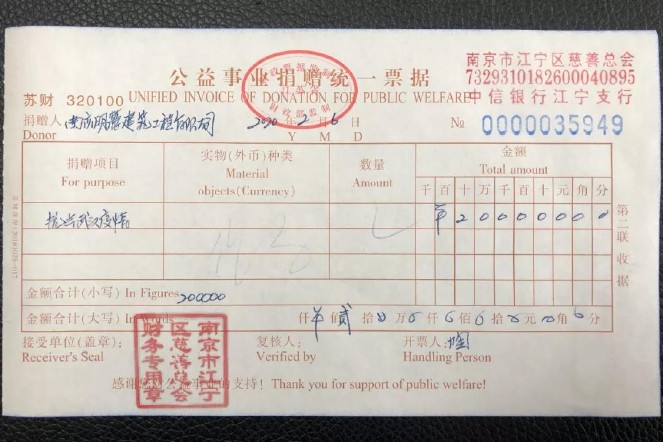 公益事业捐赠统一票据
UNIFIED INVOICE OF DONATION FOR PUBLIC WELFARE
南京市江宁区慈善总会
7329310182600040895
中信银行江宁支行
苏财 320100
捐赠人 建筑工程有限公司 2020 年 2 月 6 日
Donor Y M D
№ 0000035949
捐赠项目 实物(外币)种类 数量 金额
For purpose Material objects(Currency) Amount Total amount
千 百 十 万 千 百 十 元 角 分
武汉疫情 2 0 0 0 0 0 0 0
第二联 收据
金额合计(小写) In Figures 200000
金额合计(大写) In Words 仟 佰 贰 拾 万 仟 佰 拾 元 角 分
接受单位(盖章): 复核人: 开票人:
Receiver's Seal Verified by Handling Person
南京市江宁区慈善总会财务专用章
感谢您对公益事业的支持! Thank you for support of public welfare!